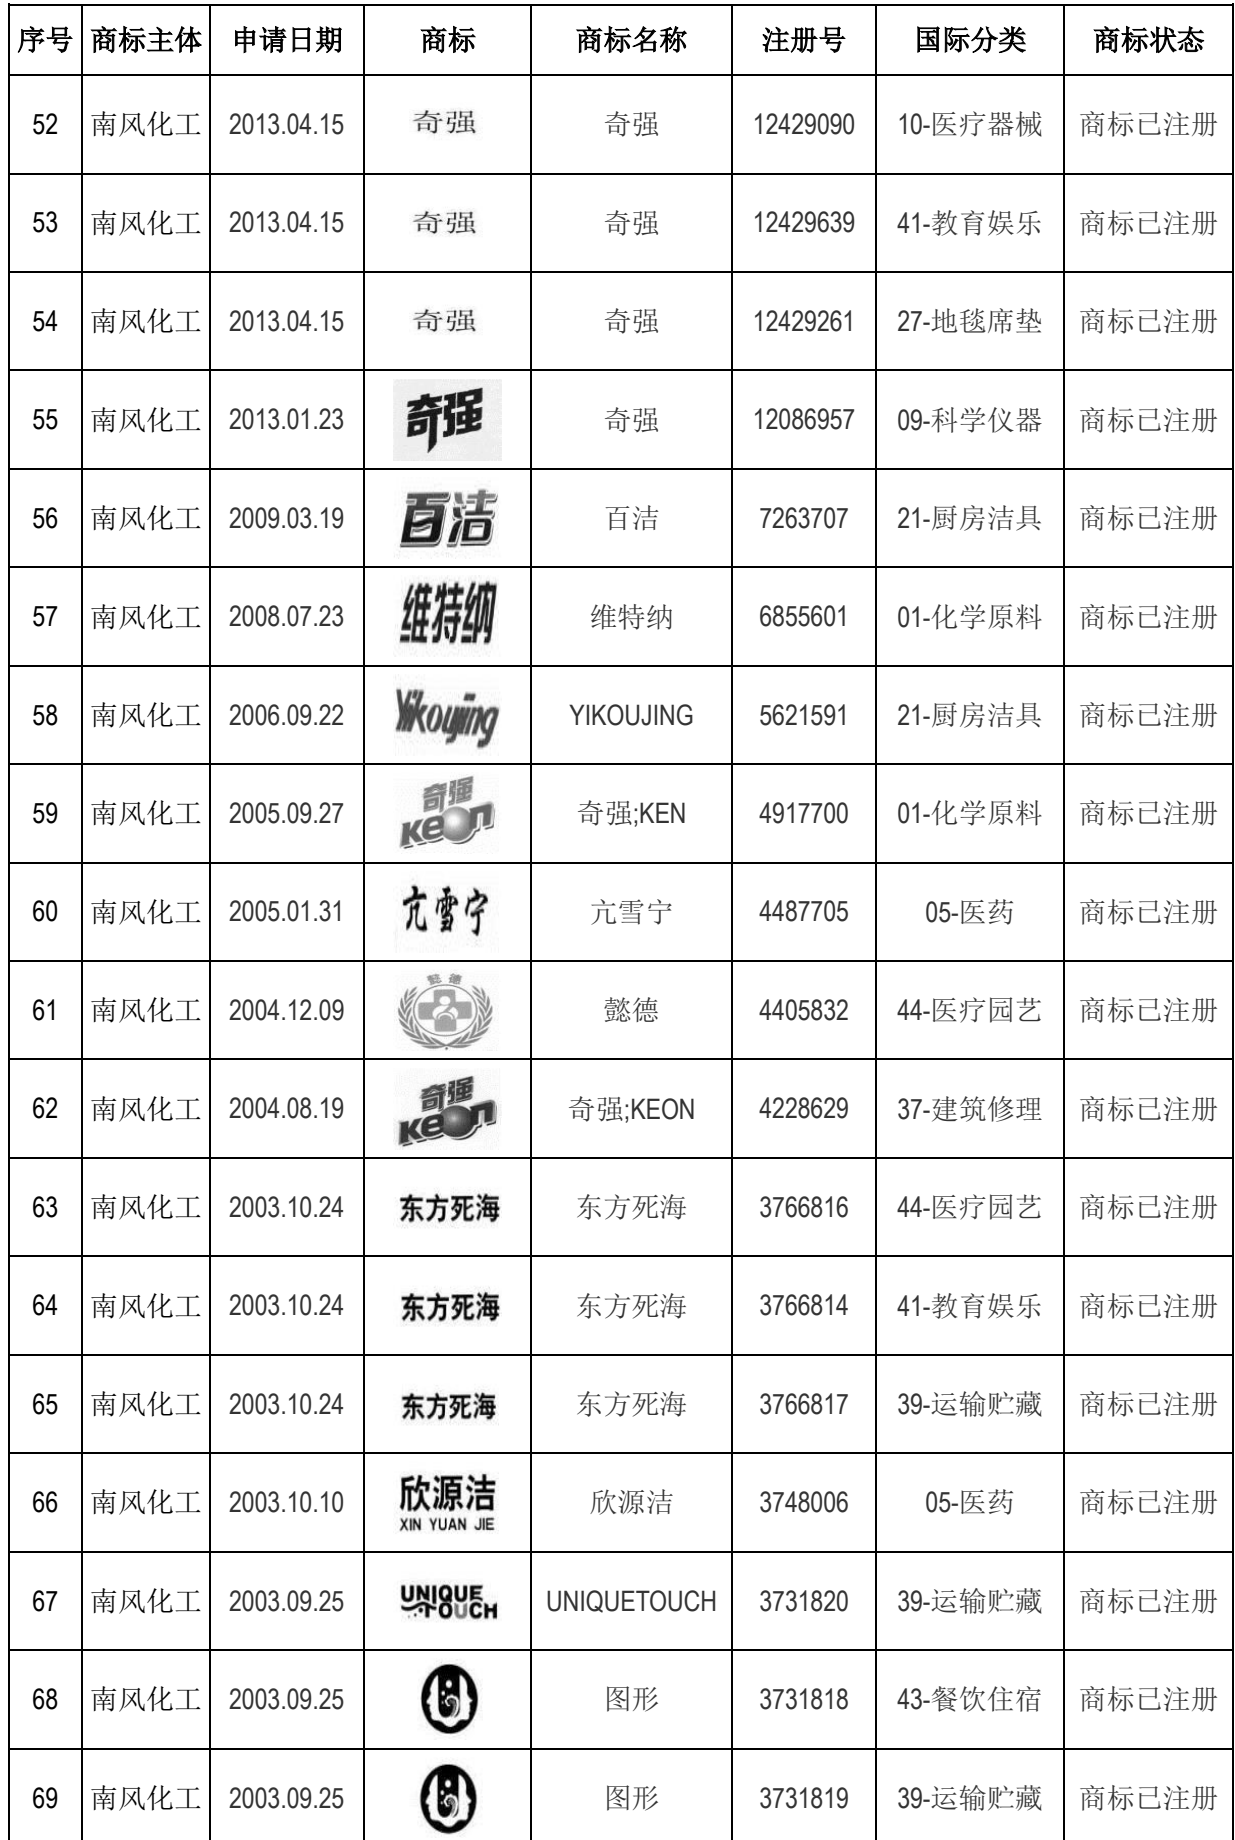 序号 商标主体 申请日期 商标 商标名称 注册号 国际分类 商标状态
52 南风化工 2013.04.15 奇强 奇强 12429090 10-医疗器械 商标已注册
53 南风化工 2013.04.15 奇强 奇强 12429639 41-教育娱乐 商标已注册
54 南风化工 2013.04.15 奇强 奇强 12429261 27-地毯席垫 商标已注册
55 南风化工 2013.01.23 奇强 奇强 12086957 09-科学仪器 商标已注册
56 南风化工 2009.03.19 百洁 百洁 7263707 21-厨房洁具 商标已注册
57 南风化工 2008.07.23 维特纳 维特纳 6855601 01-化学原料 商标已注册
58 南风化工 2006.09.22 Yikoujing YIKOUJING 5621591 21-厨房洁具 商标已注册
59 南风化工 2005.09.27 奇强 keon 奇强;KEN 4917700 01-化学原料 商标已注册
60 南风化工 2005.01.31 亢雪宁 亢雪宁 4487705 05-医药 商标已注册
61 南风化工 2004.12.09 懿德 懿德 4405832 44-医疗园艺 商标已注册
62 南风化工 2004.08.19 奇强 keon 奇强;KEON 4228629 37-建筑修理 商标已注册
63 南风化工 2003.10.24 东方死海 东方死海 3766816 44-医疗园艺 商标已注册
64 南风化工 2003.10.24 东方死海 东方死海 3766814 41-教育娱乐 商标已注册
65 南风化工 2003.10.24 东方死海 东方死海 3766817 39-运输贮藏 商标已注册
66 南风化工 2003.10.10 欣源洁 XIN YUAN JIE 欣源洁 3748006 05-医药 商标已注册
67 南风化工 2003.09.25 UNIQUE TOUCH UNIQUETOUCH 3731820 39-运输贮藏 商标已注册
68 南风化工 2003.09.25 图形 3731818 43-餐饮住宿 商标已注册
69 南风化工 2003.09.25 图形 3731819 39-运输贮藏 商标已注册